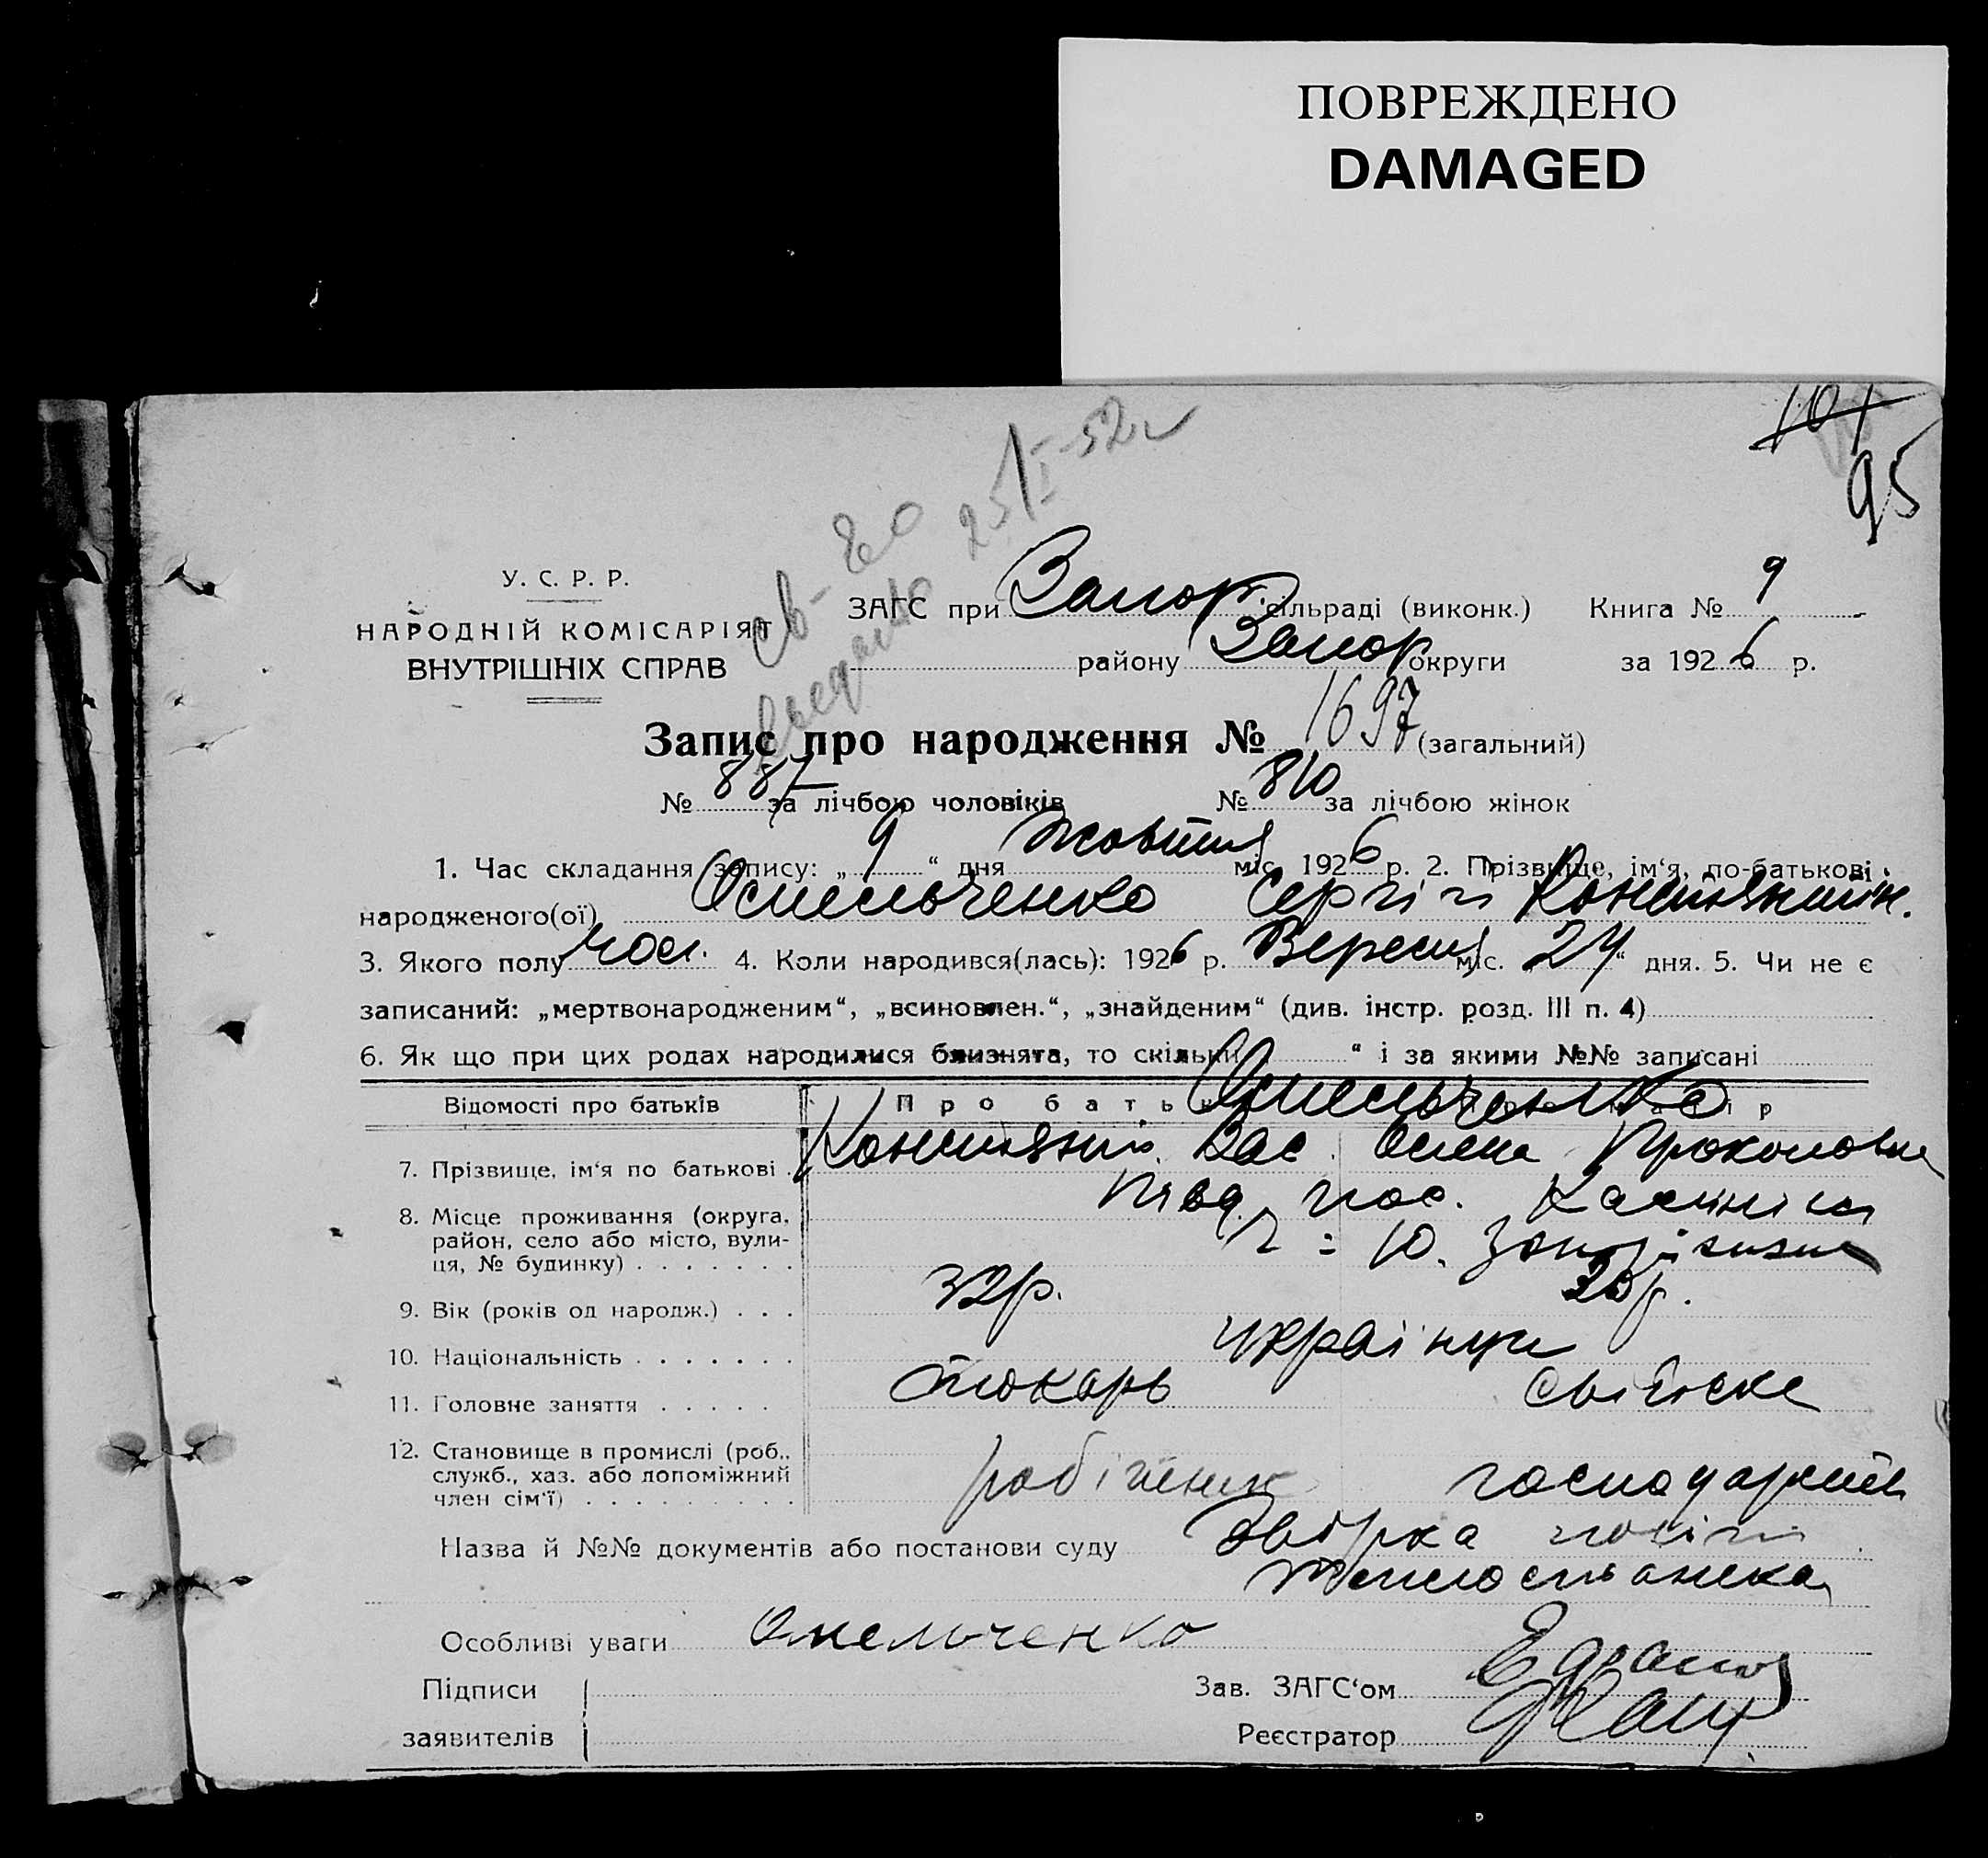 ПОВРЕЖДЕНО
DAMAGED
101
95
25/I-52г
св-во
У. С. Р. Р.
НАРОДНІЙ КОМІСАРІЯТ
ВНУТРІШНІХ СПРАВ
ЗАГС при Запор. сільраді (виконк.) Книга № 9
району Запор округи за 1926 р.
Запис про народження № 1697 (загальний)
№ 887 за лічбою чоловіків № 810 за лічбою жінок
1. Час складання запису: „9“ дня Жовтня міс. 1926 р. 2. Прізвище, ім‘я, по-батькові
народженого(ої) Омельченко Сергій Константин.
3. Якого полу чол. 4. Коли народився(лась): 1926 р. Вересня міс. „24“ дня. 5. Чи не є
записаний: „мертвонародженим“, „всиновлен.“, „знайденим“ (див. інстр. розд. III п. 4)
6. Як що при цих родах народилися близнята, то скільки “ і за якими №№ записані
Відомості про батьків Про батька Про матір
Омельченко
7. Прізвище, ім‘я по батькові Константин. Вас. Олена Прокоповна
8. Місце проживання (округа, район, село або місто, вулиця, № будинку) Півд. пос.
10.
9. Вік (років од народж.) 32р. 28р.
10. Національність українці
11. Головне заняття токарь
12. Становище в промислі (роб., служб., хаз. або допоміжний член сім‘ї) робітник
Назва й №№ документів або постанови суду
Особливі уваги Омельченко
Підписи
заявителів
Зав. ЗАГС‘ом
Реєстратор